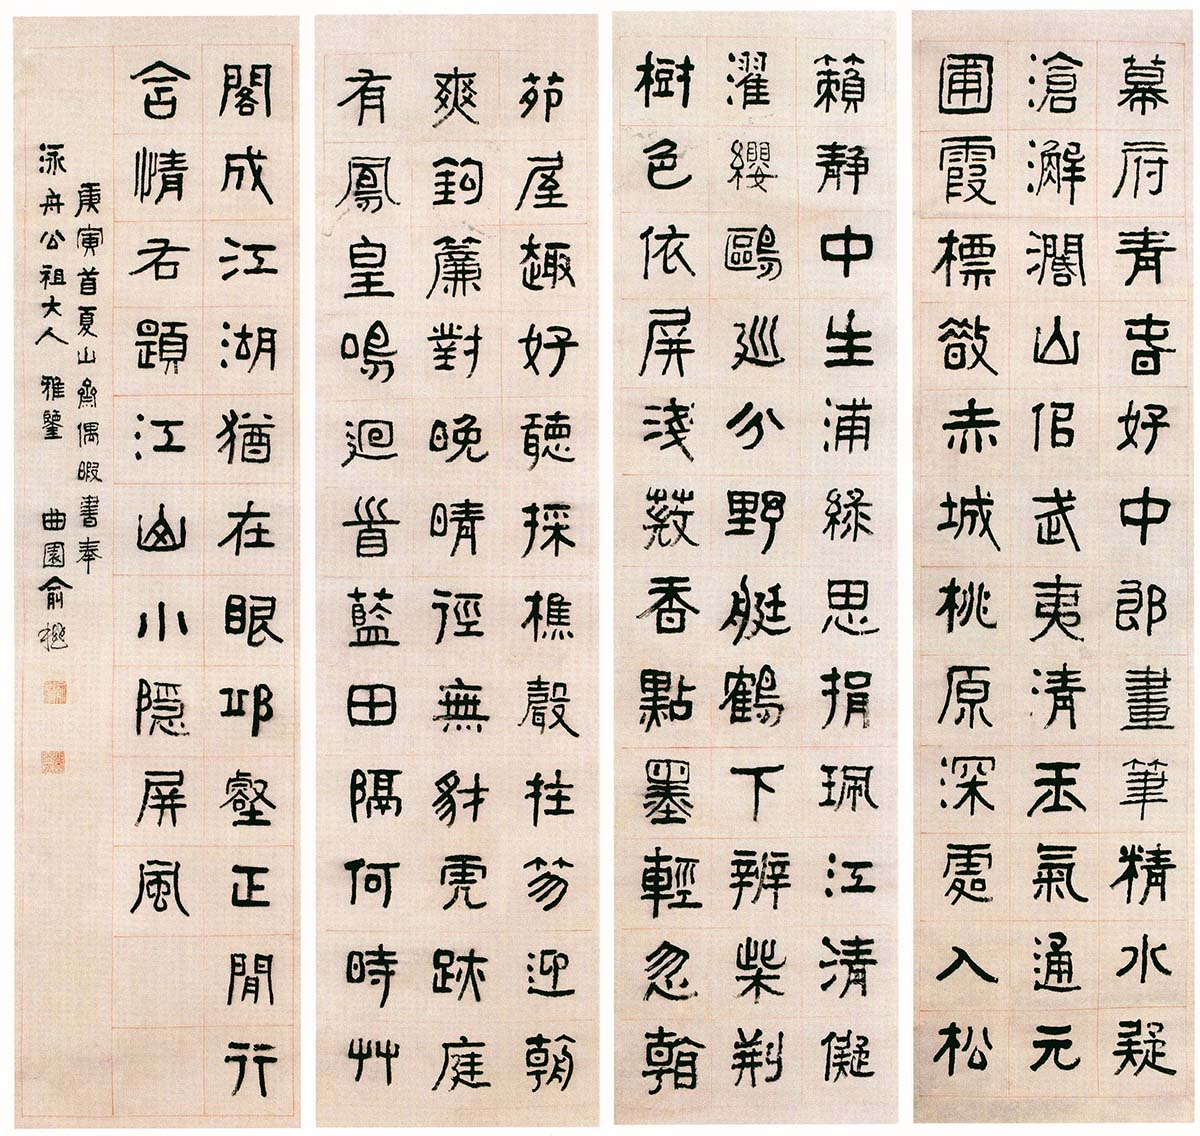 幕府青春好中郎畫筆精水疑
滄澥濶山佀武夷清玉氣通元
圃霞標敳赤城桃原深處入松
籟靜中生浦綠思捐珮江清儗
濯纓鷗巡分野艇鶴下辨柴荆
樹色依屏淺蔎香點墨輕忽翰
茆屋趣好聽採樵聲拄笏迎朝
爽鉤簾對晚晴徑無豺虎跡庭
有鳳皇鳴迴首藍田隔何時艸
閣成江湖猶在眼邱壑正閒行
言情右題江山小隱屏風
庚寅首夏山齋偶暇書奉
泳舟公祖大人 雅鑒 曲園俞樾